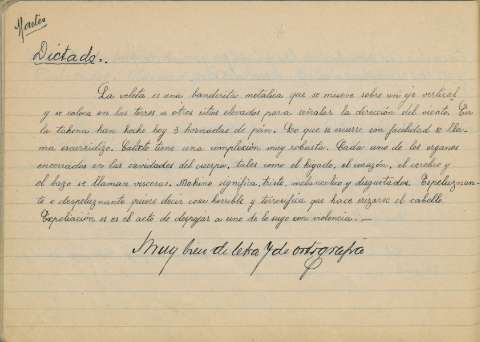 Martes
Dictado..
La veleta es una banderita metálica que se mueve sobre un eje vertical
y se coloca en las torres u otros sitios elevados para señalar la dirección del viento. En
la tahona han hecho hoy 3 hornadas de pan. Lo que se escurre con facilidad se lla-
ma escurridizo. Calixto tiene una complexión muy robusta. Cada uno de los órganos
encerrados en las cavidades del cuerpo, tales como el hígado, el corazón, el cerebro y
el bazo se llaman vísceras. Mohino significa, triste, melancólico y disgustado. Espeluznan-
te o despeluznante quiere decir cosa horrible y terrorífica que hace erizarse el cabello.
Expoliación es es el acto de despojar a uno de lo suyo con violencia. —
Muy bien de letra y de ortografía